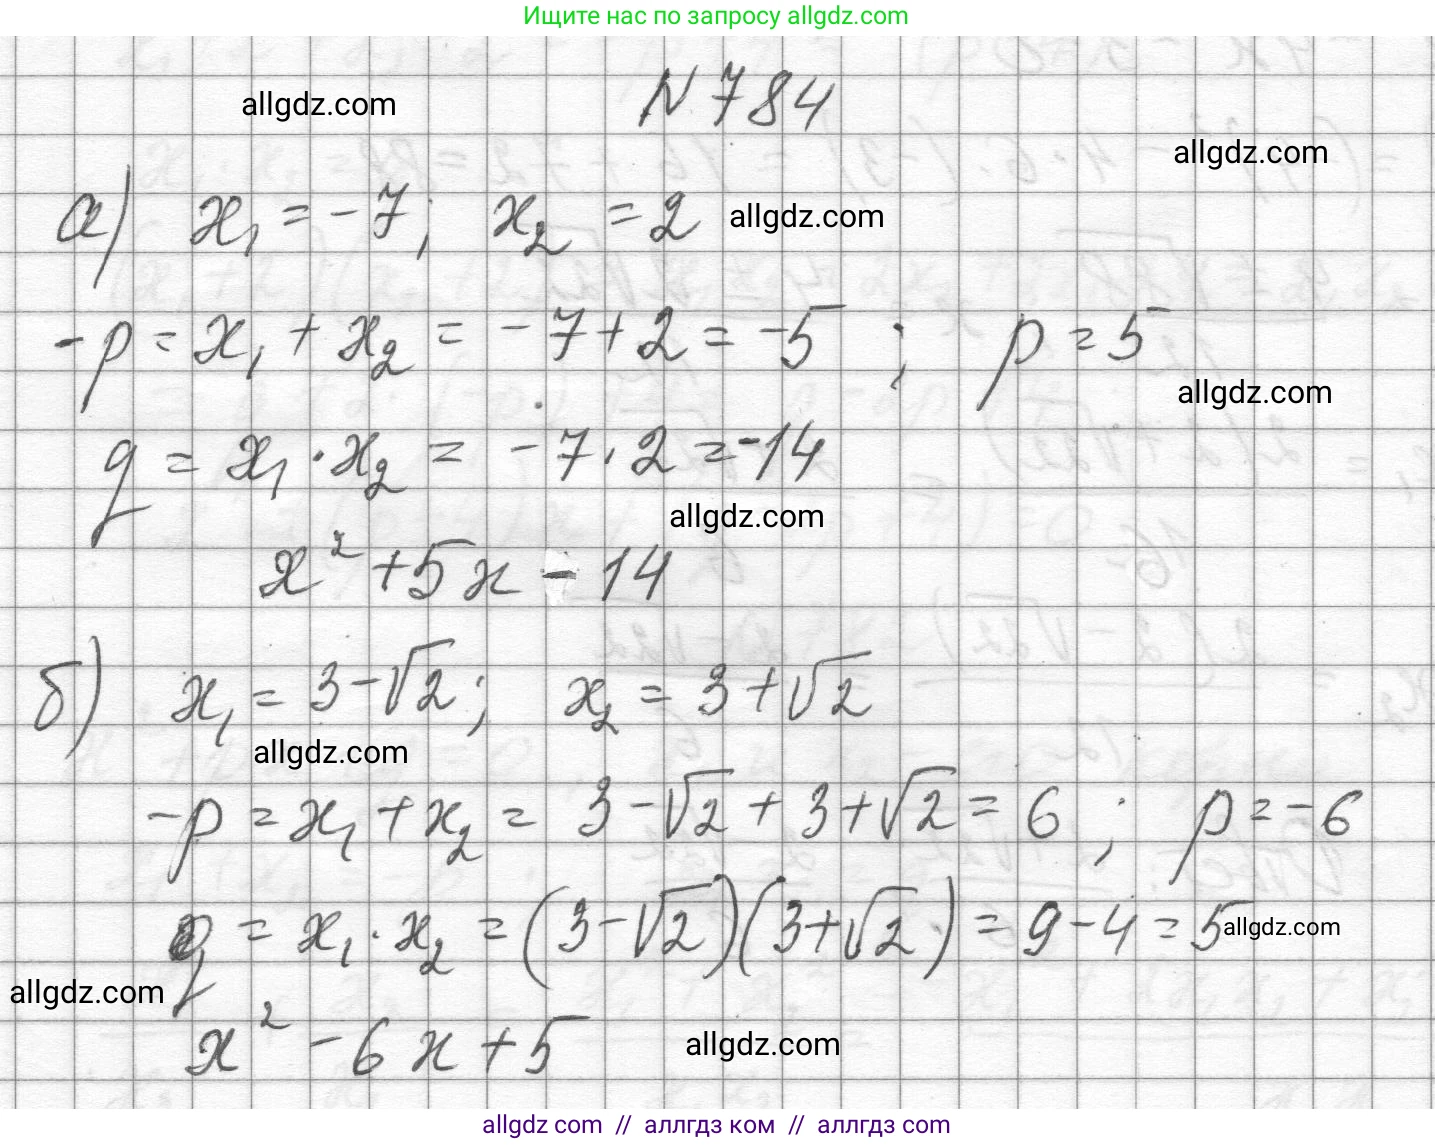 Ищите нас по запросу allgdz.com
allgdz.com
N 784
allgdz.com
а) x₁ = -7; x₂ = 2 allgdz.com
-p = x₁ + x₂ = -7 + 2 = -5 ; p = 5
allgdz.com
q = x₁ · x₂ = -7 · 2 = -14
allgdz.com
x² + 5x - 14
б) x₁ = 3 - √2; x₂ = 3 + √2
allgdz.com
-p = x₁ + x₂ = 3 - √2 + 3 + √2 = 6 ; p = -6
q = x₁ · x₂ = (3 - √2)(3 + √2) = 9 - 4 = 5 allgdz.com
allgdz.com
x² - 6x + 5 allgdz.com
allgdz.com // аллгдз ком // аллгдз com